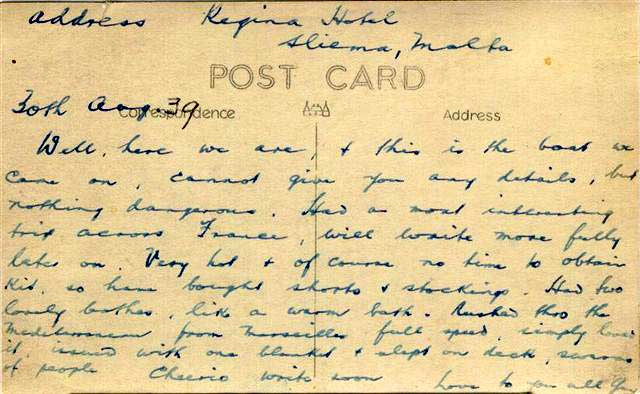 Address Regina Hotel
Sliema, Malta
POST CARD
30th Aug. 39
Correspondence
Address
Well, here we are, & this is the boat we
came on, cannot give you any details, but
nothing dangerous. Had a most interesting
trip across France, will write more fully
later on. Very hot & of course no time to obtain
kit, so have bought shorts & stockings. Had two
lovely bathes, like a warm bath. Rushed thro the
Mediterranean from Marseilles full speed, simply loved
it, issued with one blanket & slept on deck, swarms
of people Cheerio write soon Love to you all